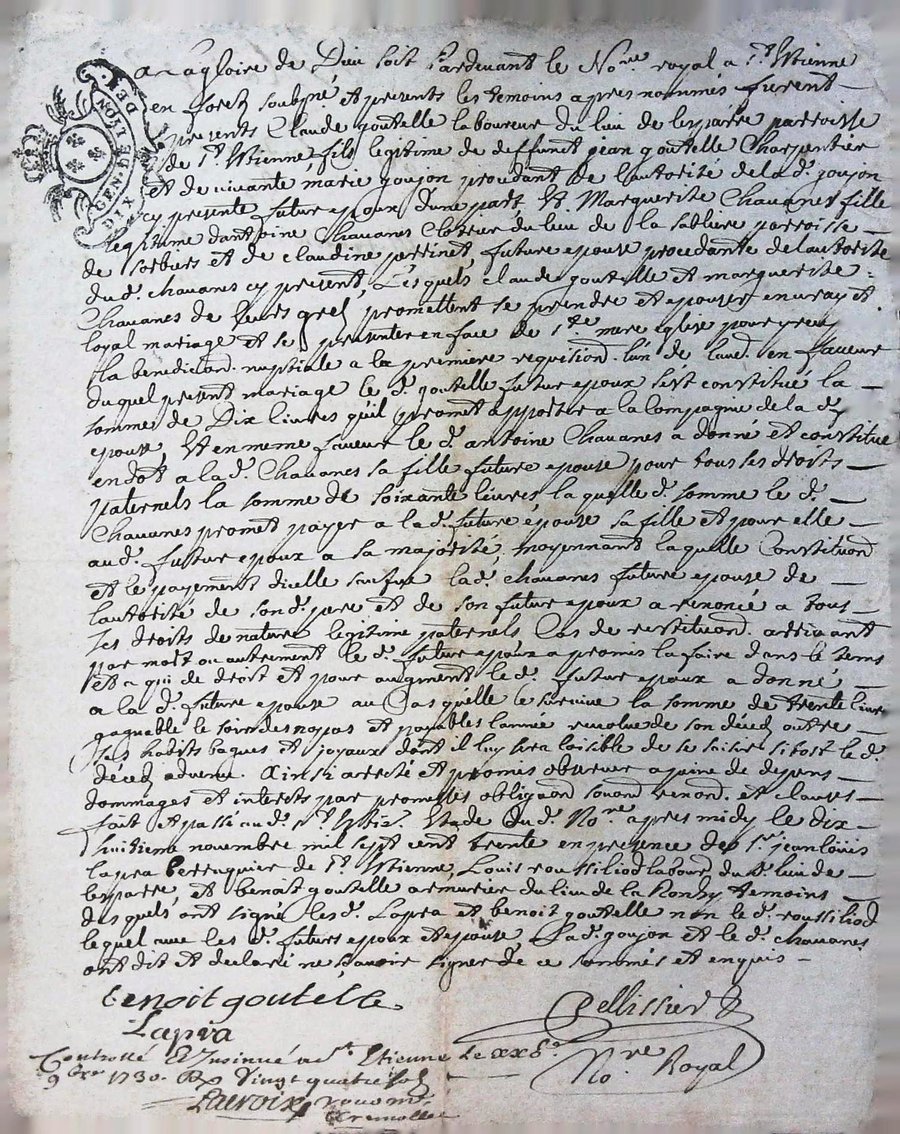 GEN. DE LYON
DIX DEN
A la gloire de Dieu soit Pardevant le No.re royal a S.t Etienne
en forez soubs.né et presents les temoins apres nommés furent
presents Claude goutelle laboureur du lieu de lesparre parroisse
de S.t Etienne fils legitime de deffunct jean goutelle Charpentier
et de vivante marie goujon procedant de lautorité de la d. goujon
cy presente futur epoux dune part Et Marguerite Chauanes fille
legitime dantoine Chauanes Cloteur du lieu de la sabliere parroisse
de sorbiers et de claudine perrinet, future epouse procedante de lautorité
du d. chauanes cy present, Lesquels claude goutelle et marguerite
Chauanes de leurs grés promettent se prendre et epouser en vray et
loyal mariage et se presenter en face de S.te mere eglise pour y recevoir
la benediction nuptiale a la premiere requision. lun de laud. en faveur
duquel present mariage le d. goutelle futur epoux sest constitué la
somme de Dix livres quil promet apporter a la Compagnie de la d.
epouse, Et en meme faveur le d. antoine Chauanes a donné et constitué
en dot a la d. Chauanes sa fille future epouse pour tous ses droits
paternels la somme de soixante livres la quelle d. somme le d.
Chauanes promet payer a la d. future epouse sa fille et pour elle
au d. futur epoux a sa majorité, moyennant laquelle Constituon
et le payement dicelle sauf la d. chauanes future epouse de
lautorité de son d. pere et de son futur epoux a renoncé a tous
ses droits de nature legitime paternels Cas de restituon. arrivant
par mort ou autrement le d. futur epoux a promis la faire dans le tems
et a qui de droit et pour augment le d. futur epoux a donné
a la d. future epouse au Cas quelle le survive la somme de trente livres
gagnable le soir des nopces et payables lannée revolue de son déced outre
ses habits bagues et joyaux dont il luy sera loisible de se saisir sitost le d.
déced advenu. Ainsi arreté et promis observer a peine de depens
dommages et interests par promesses obligaon souond renond. et clauses
fait et passé au d. S.t Etie. Etude du d. No.re apres midy le dix
huitieme novembre mil sept cent trente en presence de s.r jean louis
lapra perruquier de S.t Etienne, Louis roussiliod labour. du d. lieu de
lesparre, et benoit goutelle armurier du lieu de la Ronzy temoins
desquels ont signé les d. Lapra et benoit goutelle non le d. roussiliod
lequel avec les d. futurs epoux et epouse, La d. goujon et le d. chauanes
ont dit et declaré ne sçavoir signer de ce sommés et enquis
benoit goutelle
Pellissier
Lapra
No.re Royal
Controllé Et Insinué a St Etienne le xx 8.e
9bre 1730. R Vingt quatre sols
Lacroix